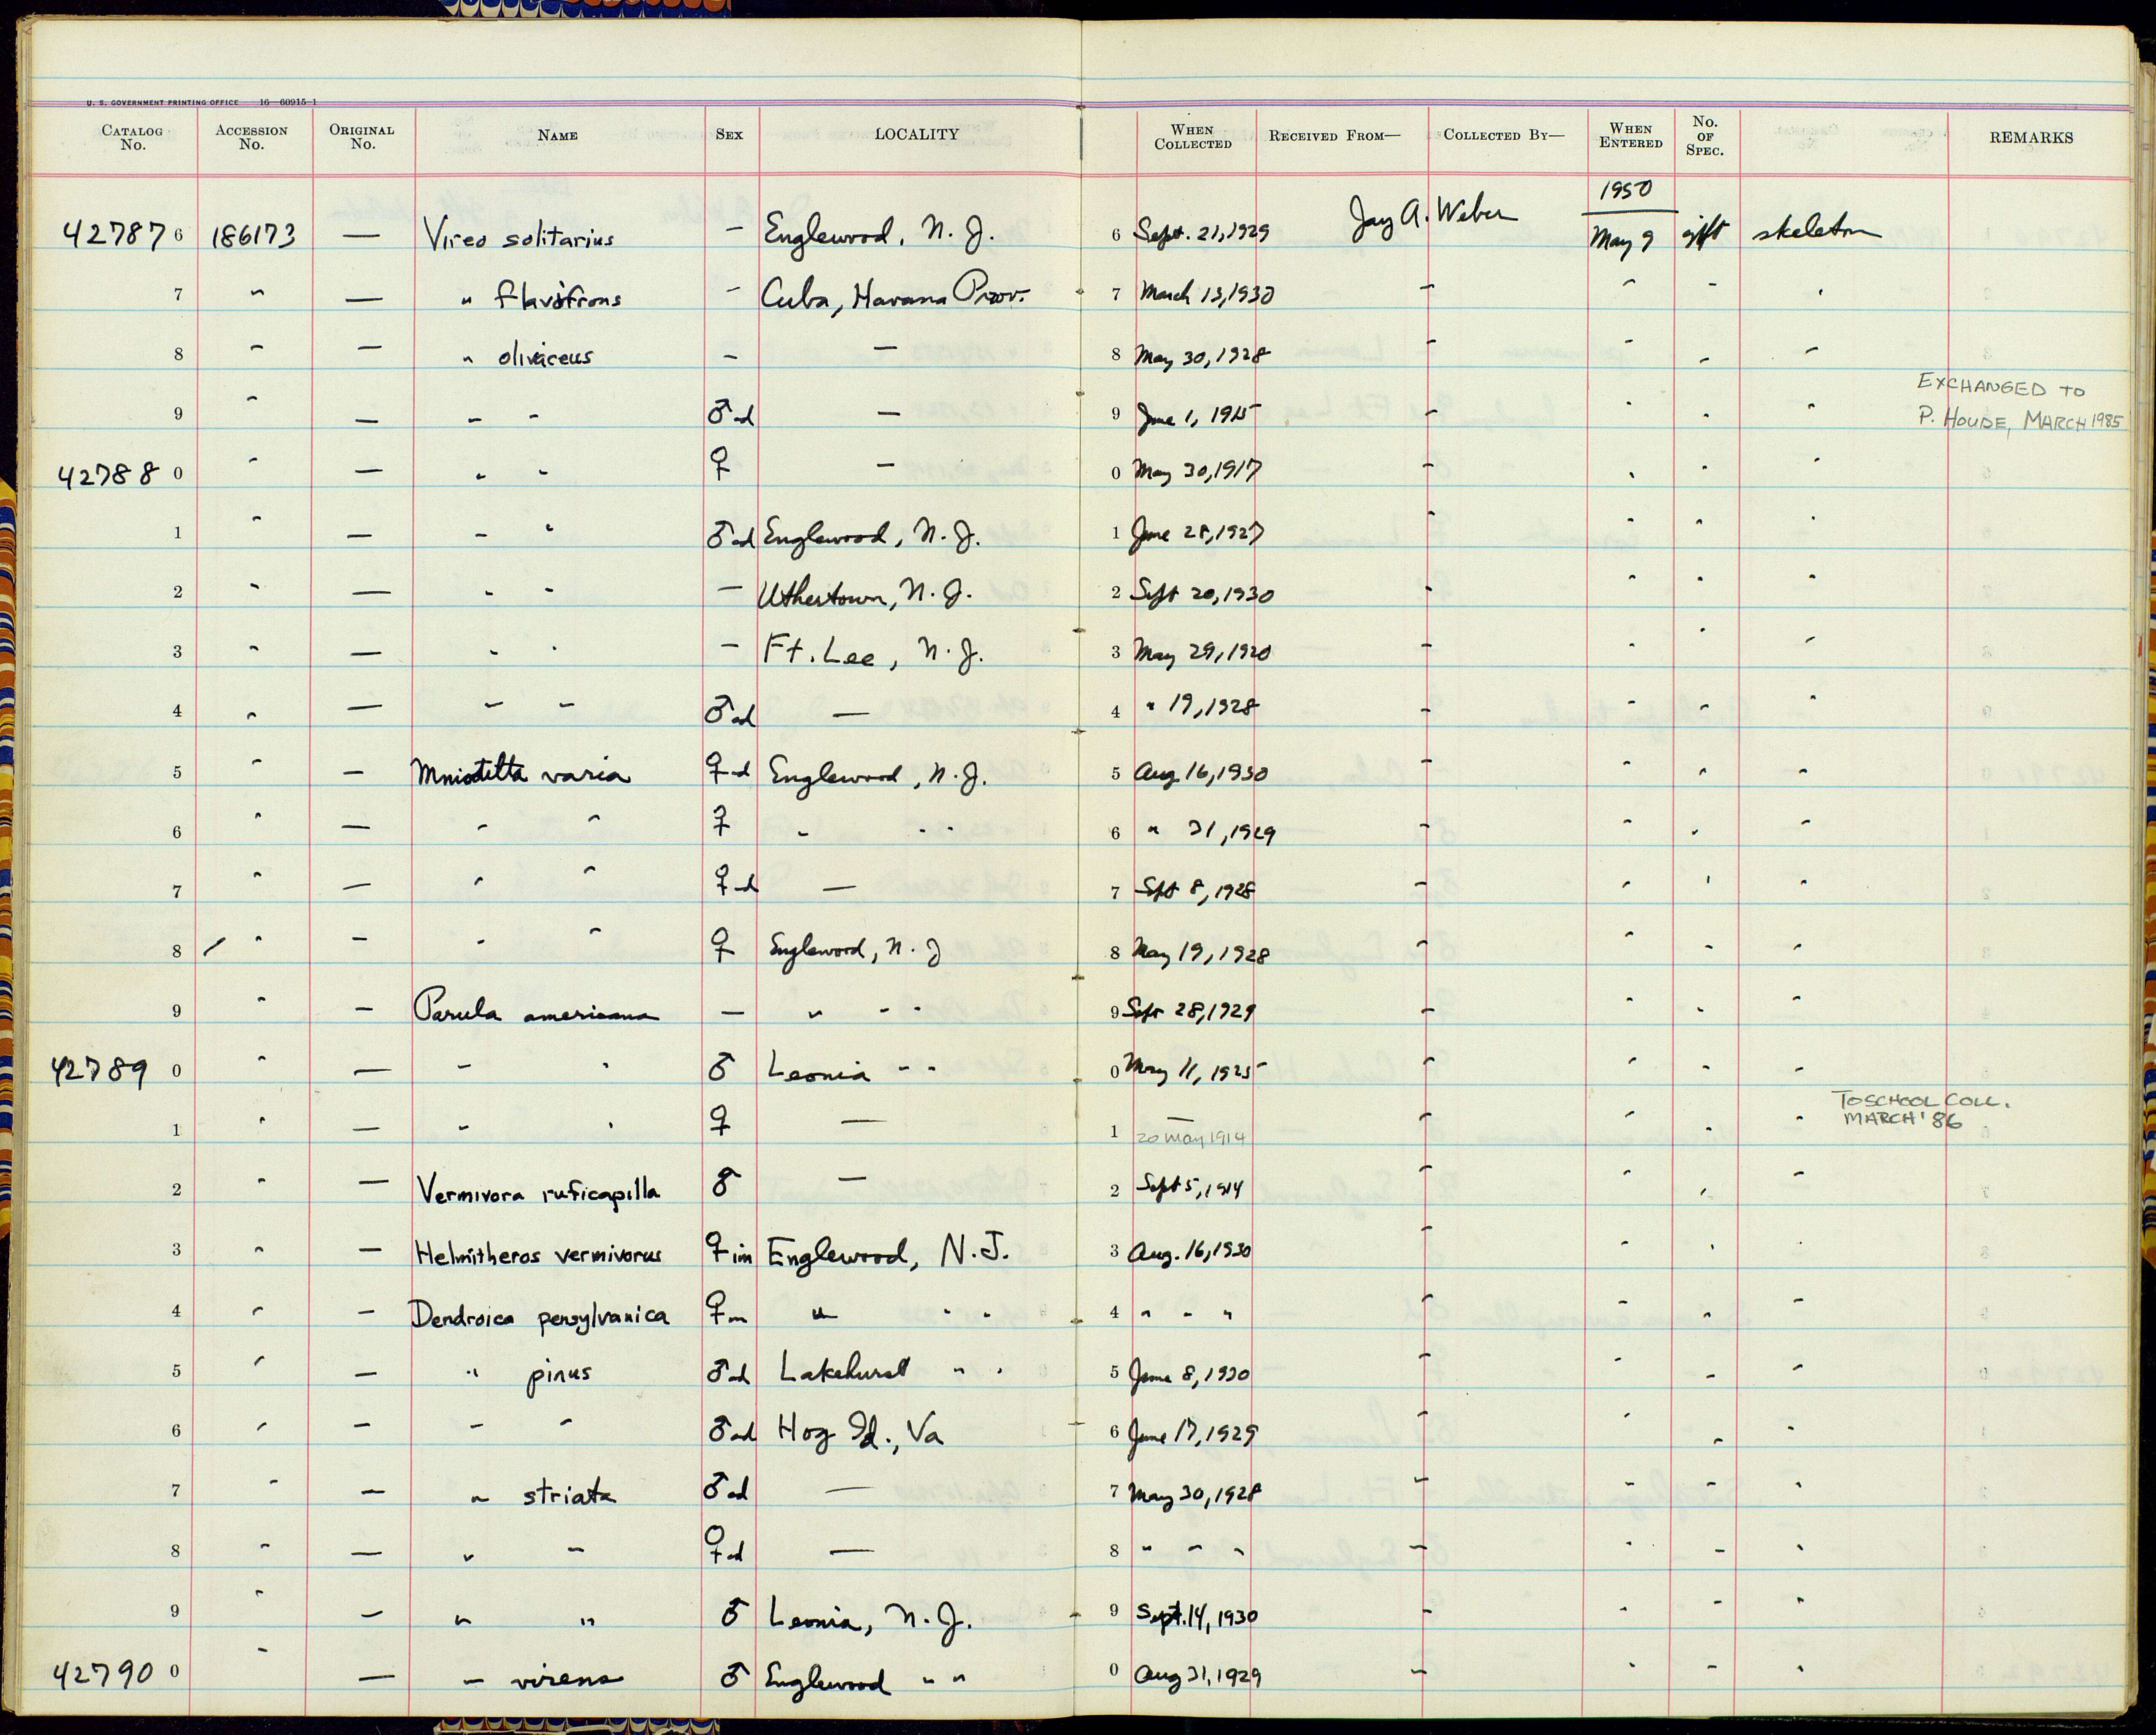 U. S. GOVERNMENT PRINTING OFFICE 16—60915-1
CATALOG No. ACCESSION No. ORIGINAL No. NAME SEX LOCALITY WHEN COLLECTED RECEIVED FROM— COLLECTED BY— WHEN ENTERED No. OF SPEC. REMARKS
1950
42787 6 186173 — Vireo solitarius — Englewood, N. J. 6 Sept. 21, 1929 Jay A. Weber May 9 gift skeleton
7 " — " flavifrons — Cuba, Havana Prov. 7 March 13, 1930 " " " "
8 " — " olivaceus — — 8 May 30, 1928 " " " "
9 " — " " ♂ad — 9 June 1, 1915 " " " " EXCHANGED TO
P. HOUDE, MARCH 1985
42788 0 " — " " ♀ — 0 May 30, 1917 " " " "
1 " — " " ♂ad Englewood, N. J. 1 June 28, 1927 " " " "
2 " — " " — N. J. 2 Sept 20, 1930 " " " "
3 " — " " — Ft. Lee, N. J. 3 May 29, 1920 " " " "
4 " — " " ♂ad — 4 " 19, 1928 " " " "
5 " — Mniotilta varia ♀ad Englewood, N. J. 5 Aug. 16, 1930 " " " "
6 " — " " ♀ " " " 6 " 31, 1929 " " " "
7 " — " " ♀ad — 7 Sept 8, 1928 " " " "
8 / " — " " ♀ Englewood, N. J 8 May 19, 1928 " " " "
9 " — Parula americana — " " " 9 Sept 28, 1929 " " " "
42789 0 " — " " ♂ Leonia " " 0 May 11, 1925 " " " "
1 " — " " ♀ — 1 — 20 May 1914 " " " " TO SCHOOL COLL.
MARCH '86
2 " — Vermivora ruficapilla ♂ — 2 Sept 5, 1914 " " " "
3 " — Helmitheros vermivorus ♀ im Englewood, N. J. 3 Aug. 16, 1930 " " " "
4 " — Dendroica pensylvanica ♀ im " " " 4 " " " " " " "
5 " — " pinus ♂ad Lakehurst " " 5 June 8, 1930 " " " "
6 " — " " ♂ad Hog Id., Va 6 June 17, 1929 " " " "
7 " — " striata ♂ad — 7 May 30, 1928 " " " "
8 " — " " ♀ad — 8 " " " " " " "
9 " — " " ♂ Leonia, N. J. 9 Sept. 14, 1930 " " " "
42790 0 " — " virens ♂ Englewood " " 0 Aug 31, 1929 " " " "